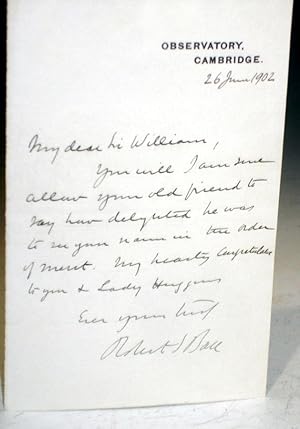 OBSERVATORY,
CAMBRIDGE.
26 June 1902
My dear Sir William,
You will I am sure
allow your old friend to
say how delighted he was
to see your name in the order
of merit. My hearty congratulations
to you & Lady Huggins
Ever yours truly
Robert S Ball